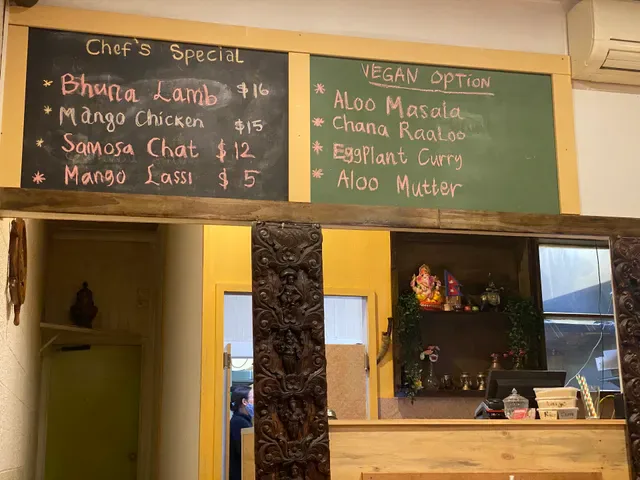 Chef's Special
* Bhuna Lamb $16
* Mango Chicken $15
* Samosa Chat $12
* Mango Lassi $5
VEGAN OPTION
* ALOO MASALA
* CHANA RAALOO
* Eggplant Curry
* Aloo Mutter